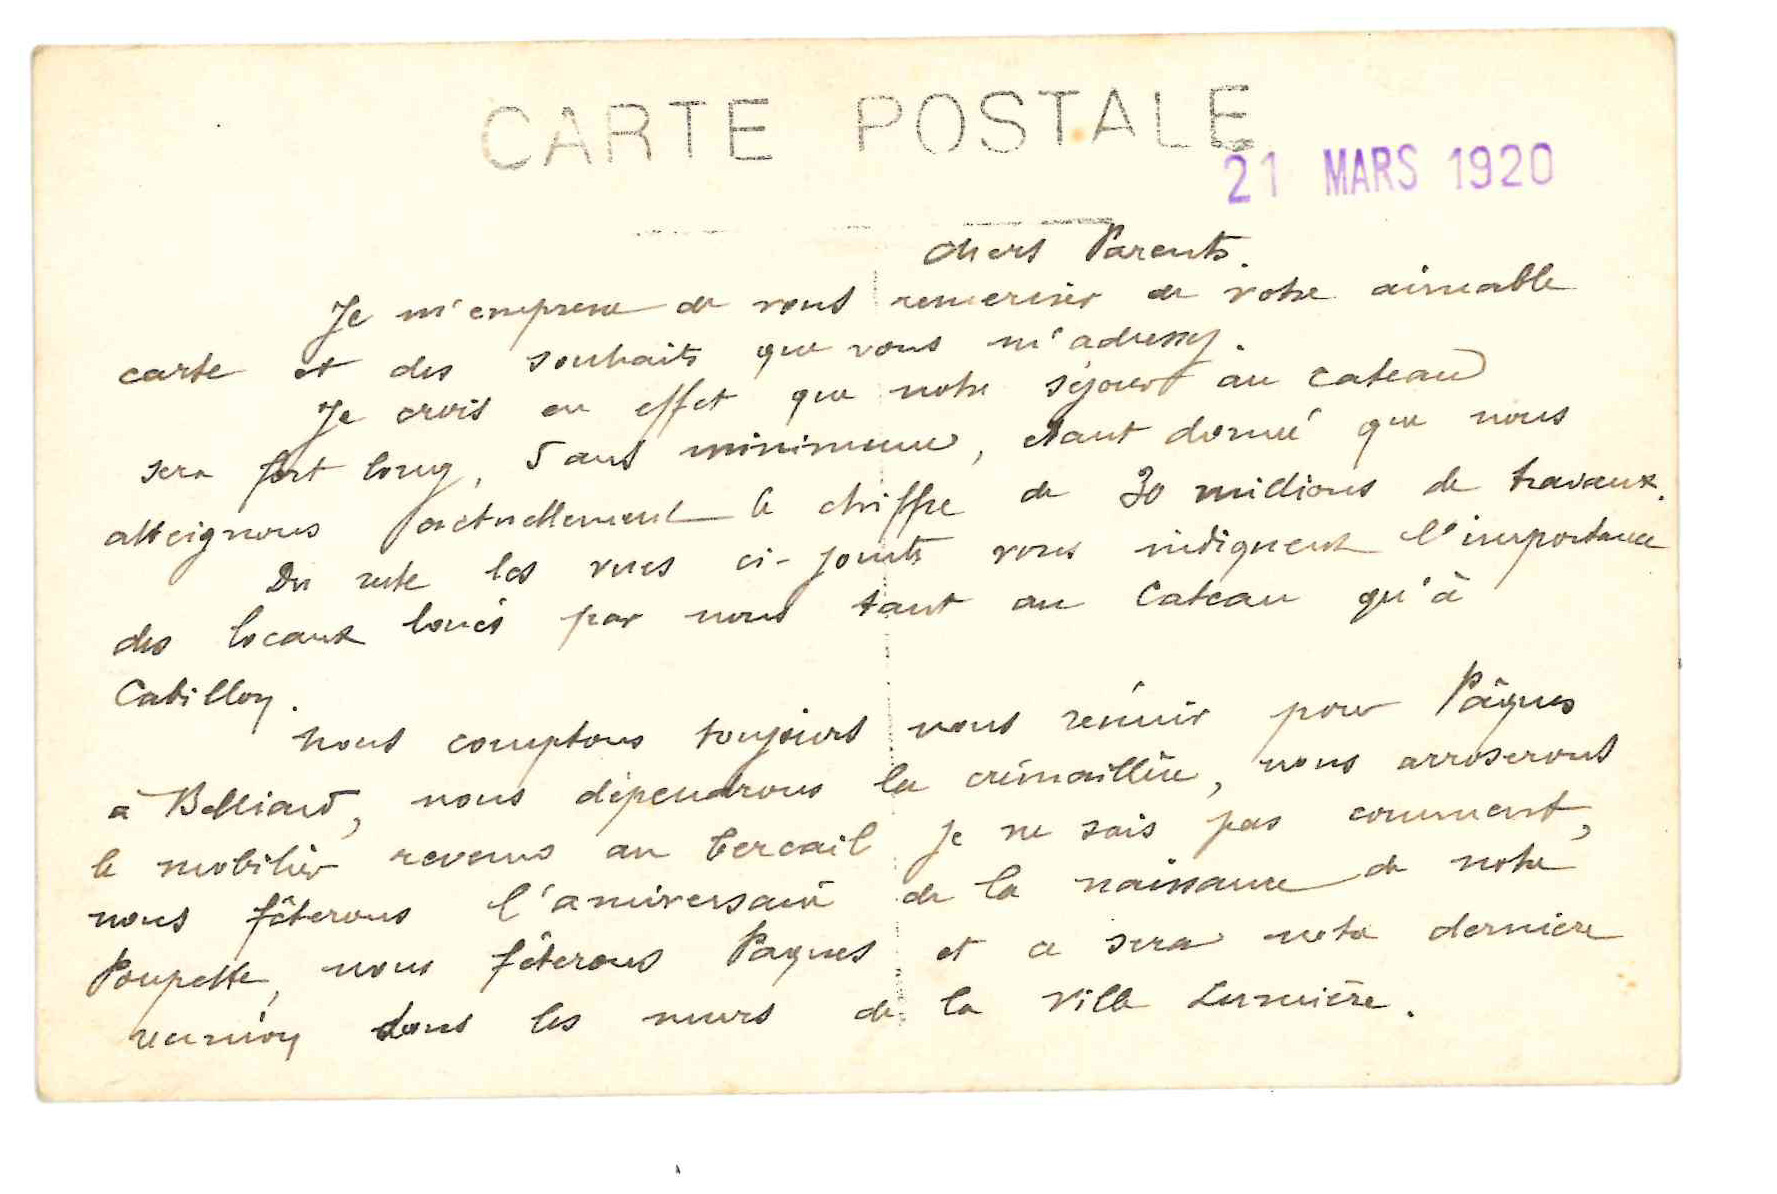 CARTE POSTALE
21 MARS 1920
Chers Parents.
Je m'empresse de vous remercier de votre aimable
carte et des souhaits que vous m'adressez.
Je crois en effet que notre séjour au Cateau
sera fort long, 5 ans minimum, étant donné que nous
atteignons actuellement le chiffre de 30 millions de travaux.
Du reste les vues ci-joints vous indiquent l'importance
des locaux loués par nous tant au Cateau qu'à
Catillon.
Nous comptons toujours nous réunir pour Pâques
à Belliard, nous dépendrons la crémaillère, nous arroserons
le mobilier revenus au bercail je ne sais pas comment,
nous fêterons l'aniversaire de la naissance de notre
Poupette, nous fêterons Paques et ce sera notre dernière
réunion dans les murs de la Ville Lumière.